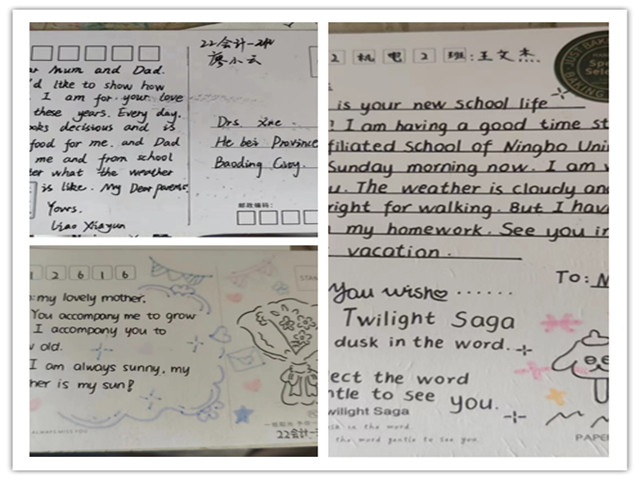 22会计-2班
廖小云
Mum and Dad.
like to show how
I am for your love
these years. Every day.
decisious and is
food for me. and Dad
me and from school
what the wrather
is like. My Dear parens.
Yours.
Liao Xiayun
Drs. xue.
He bei Province
Baoding Citoy.
邮政编码:
2 机 电 2 班:王文杰
is your new school life
! I am having a good time
School of Ningbo
Sunday morning now. I am
The weather is cloudy and
right for walking. But I have
my homework. See you in
vacation.
To:
1 2 6 1 6
my lovely mother.
You accompany me to grow
I accompany you to
old.
I am always sunny, my
is my sun!
ALWAYS MISS YOU
22会计-
You wish
Twilight Saga
dusk in the word.
the word
to see you.
wilight Saga
in the word
the word gentle to see you
PAPER